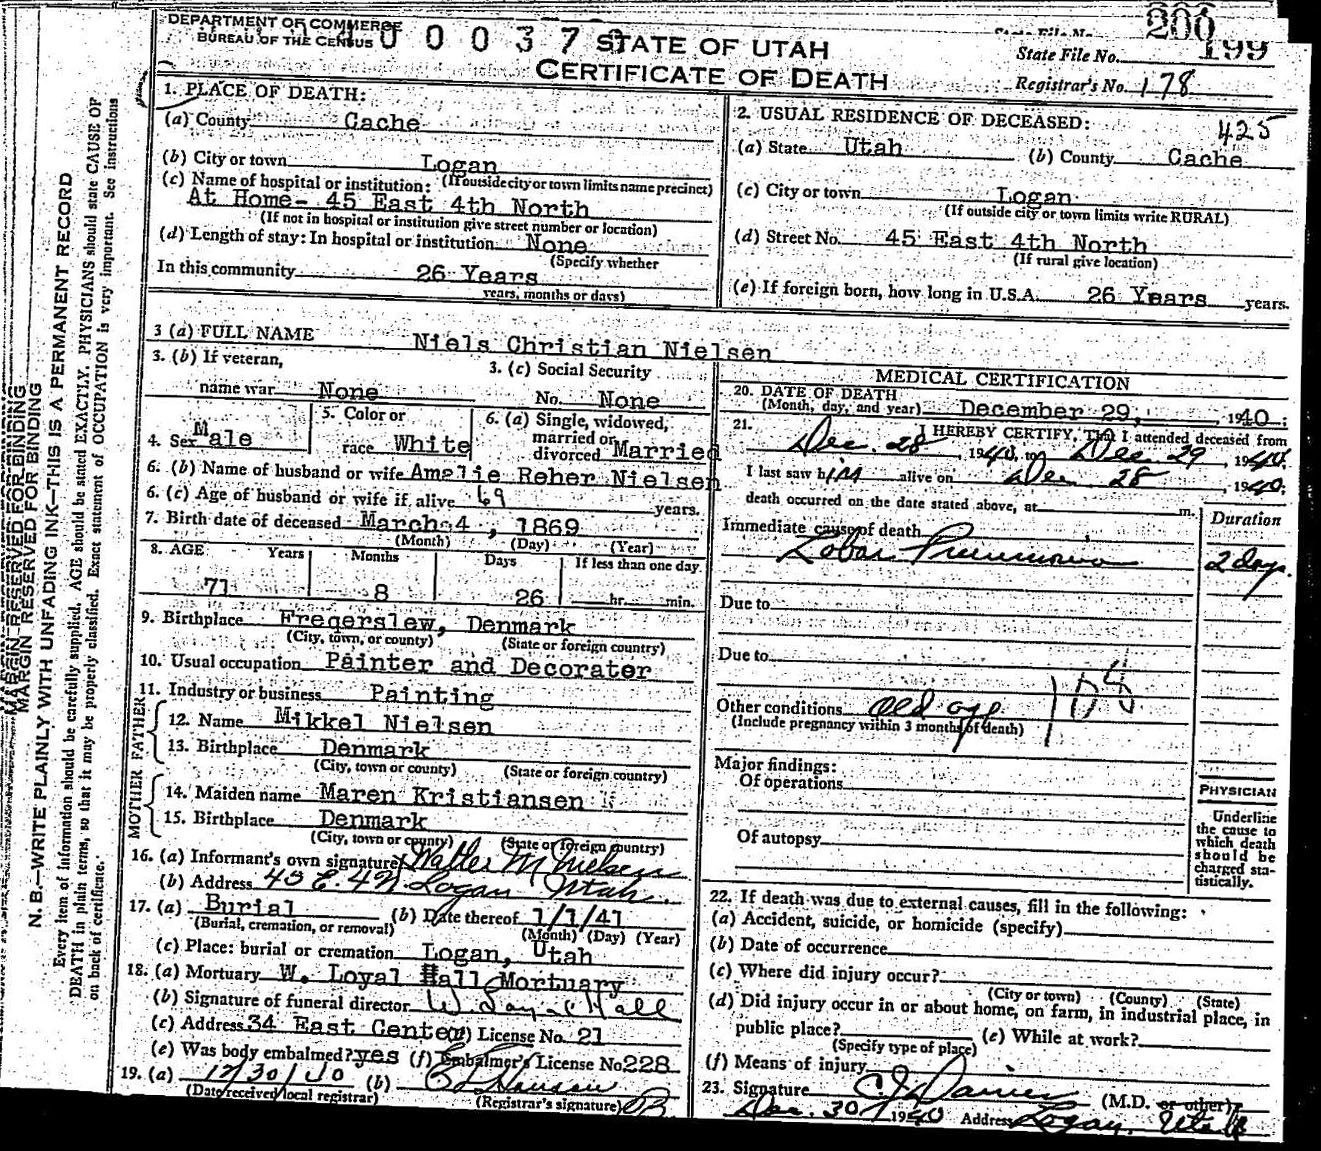 DEPARTMENT OF COMMERCE
BUREAU OF THE CENSUS
400037
STATE OF UTAH
CERTIFICATE OF DEATH
200
State File No. 199
Registrar's No. 178
MARGIN RESERVED FOR BINDING
N. B.—WRITE PLAINLY WITH UNFADING INK—THIS IS A PERMANENT RECORD
Every item of information should be carefully supplied. AGE should be stated EXACTLY. PHYSICIANS should state CAUSE OF
DEATH in plain terms, so that it may be properly classified. Exact statement of OCCUPATION is very important. See instructions
on back of certificate.
1. PLACE OF DEATH:
(a) County Cache
(b) City or town Logan
(If outside city or town limits name precinct)
(c) Name of hospital or institution:
At Home- 45 East 4th North
(If not in hospital or institution give street number or location)
(d) Length of stay: In hospital or institution None
(Specify whether
In this community 26 Years
years, months or days)
2. USUAL RESIDENCE OF DECEASED:
425
(a) State Utah (b) County Cache
(c) City or town Logan
(If outside city or town limits write RURAL)
(d) Street No. 45 East 4th North
(If rural give location)
(e) If foreign born, how long in U.S.A. 26 Years years.
3 (a) FULL NAME Niels Christian Nielsen
3. (b) If veteran,
name war None
3. (c) Social Security
No. None
4. Sex Male
5. Color or
race White
6. (a) Single, widowed,
married or
divorced Married
6. (b) Name of husband or wife Amalie Reher Nielsen
6. (c) Age of husband or wife if alive 69 years.
7. Birth date of deceased March 4, 1869
(Month) (Day) (Year)
8. AGE Years Months Days If less than one day
71 8 26 hr. min.
9. Birthplace Fregerslew, Denmark
(City, town, or county) (State or foreign country)
10. Usual occupation Painter and Decorator
11. Industry or business Painting
FATHER
12. Name Mikkel Nielsen
13. Birthplace Denmark
(City, town or county) (State or foreign country)
MOTHER
14. Maiden name Maren Kristiansen
15. Birthplace Denmark
(City, town or county) (State or foreign country)
16. (a) Informant's own signature Walter M Nielsen
(b) Address 45 E. 4 N. Logan Utah
17. (a) Burial (b) Date thereof 1/1/41
(Burial, cremation, or removal) (Month) (Day) (Year)
(c) Place: burial or cremation Logan, Utah
18. (a) Mortuary W. Loyal Hall Mortuary
(b) Signature of funeral director W. Loyal Hall
(c) Address 34 East Center (d) License No. 21
(e) Was body embalmed? yes (f) Embalmer's License No 228
19. (a) 12/30/40 (b)
(Date received local registrar) (Registrar's signature)
MEDICAL CERTIFICATION
20. DATE OF DEATH
(Month, day, and year) December 29, 1940
21. I HEREBY CERTIFY, That I attended deceased from
Dec. 28, 1940, to Dec. 29, 1940.
I last saw him alive on Dec 28 1940;
death occurred on the date stated above, at m.
Duration
Immediate cause of death
Lobar Pneumonia 2 days.
Due to
Due to
Other conditions old age 108
(Include pregnancy within 3 months of death)
Major findings:
Of operations
Of autopsy
PHYSICIAN
Underline
the cause to
which death
should be
charged sta-
tistically.
22. If death was due to external causes, fill in the following:
(a) Accident, suicide, or homicide (specify)
(b) Date of occurrence
(c) Where did injury occur?
(City or town) (County) (State)
(d) Did injury occur in or about home, on farm, in industrial place, in
public place? (e) While at work?
(Specify type of place)
(f) Means of injury
23. Signature (M.D. or other)
Dec. 30, 1940 Address Logan, Utah